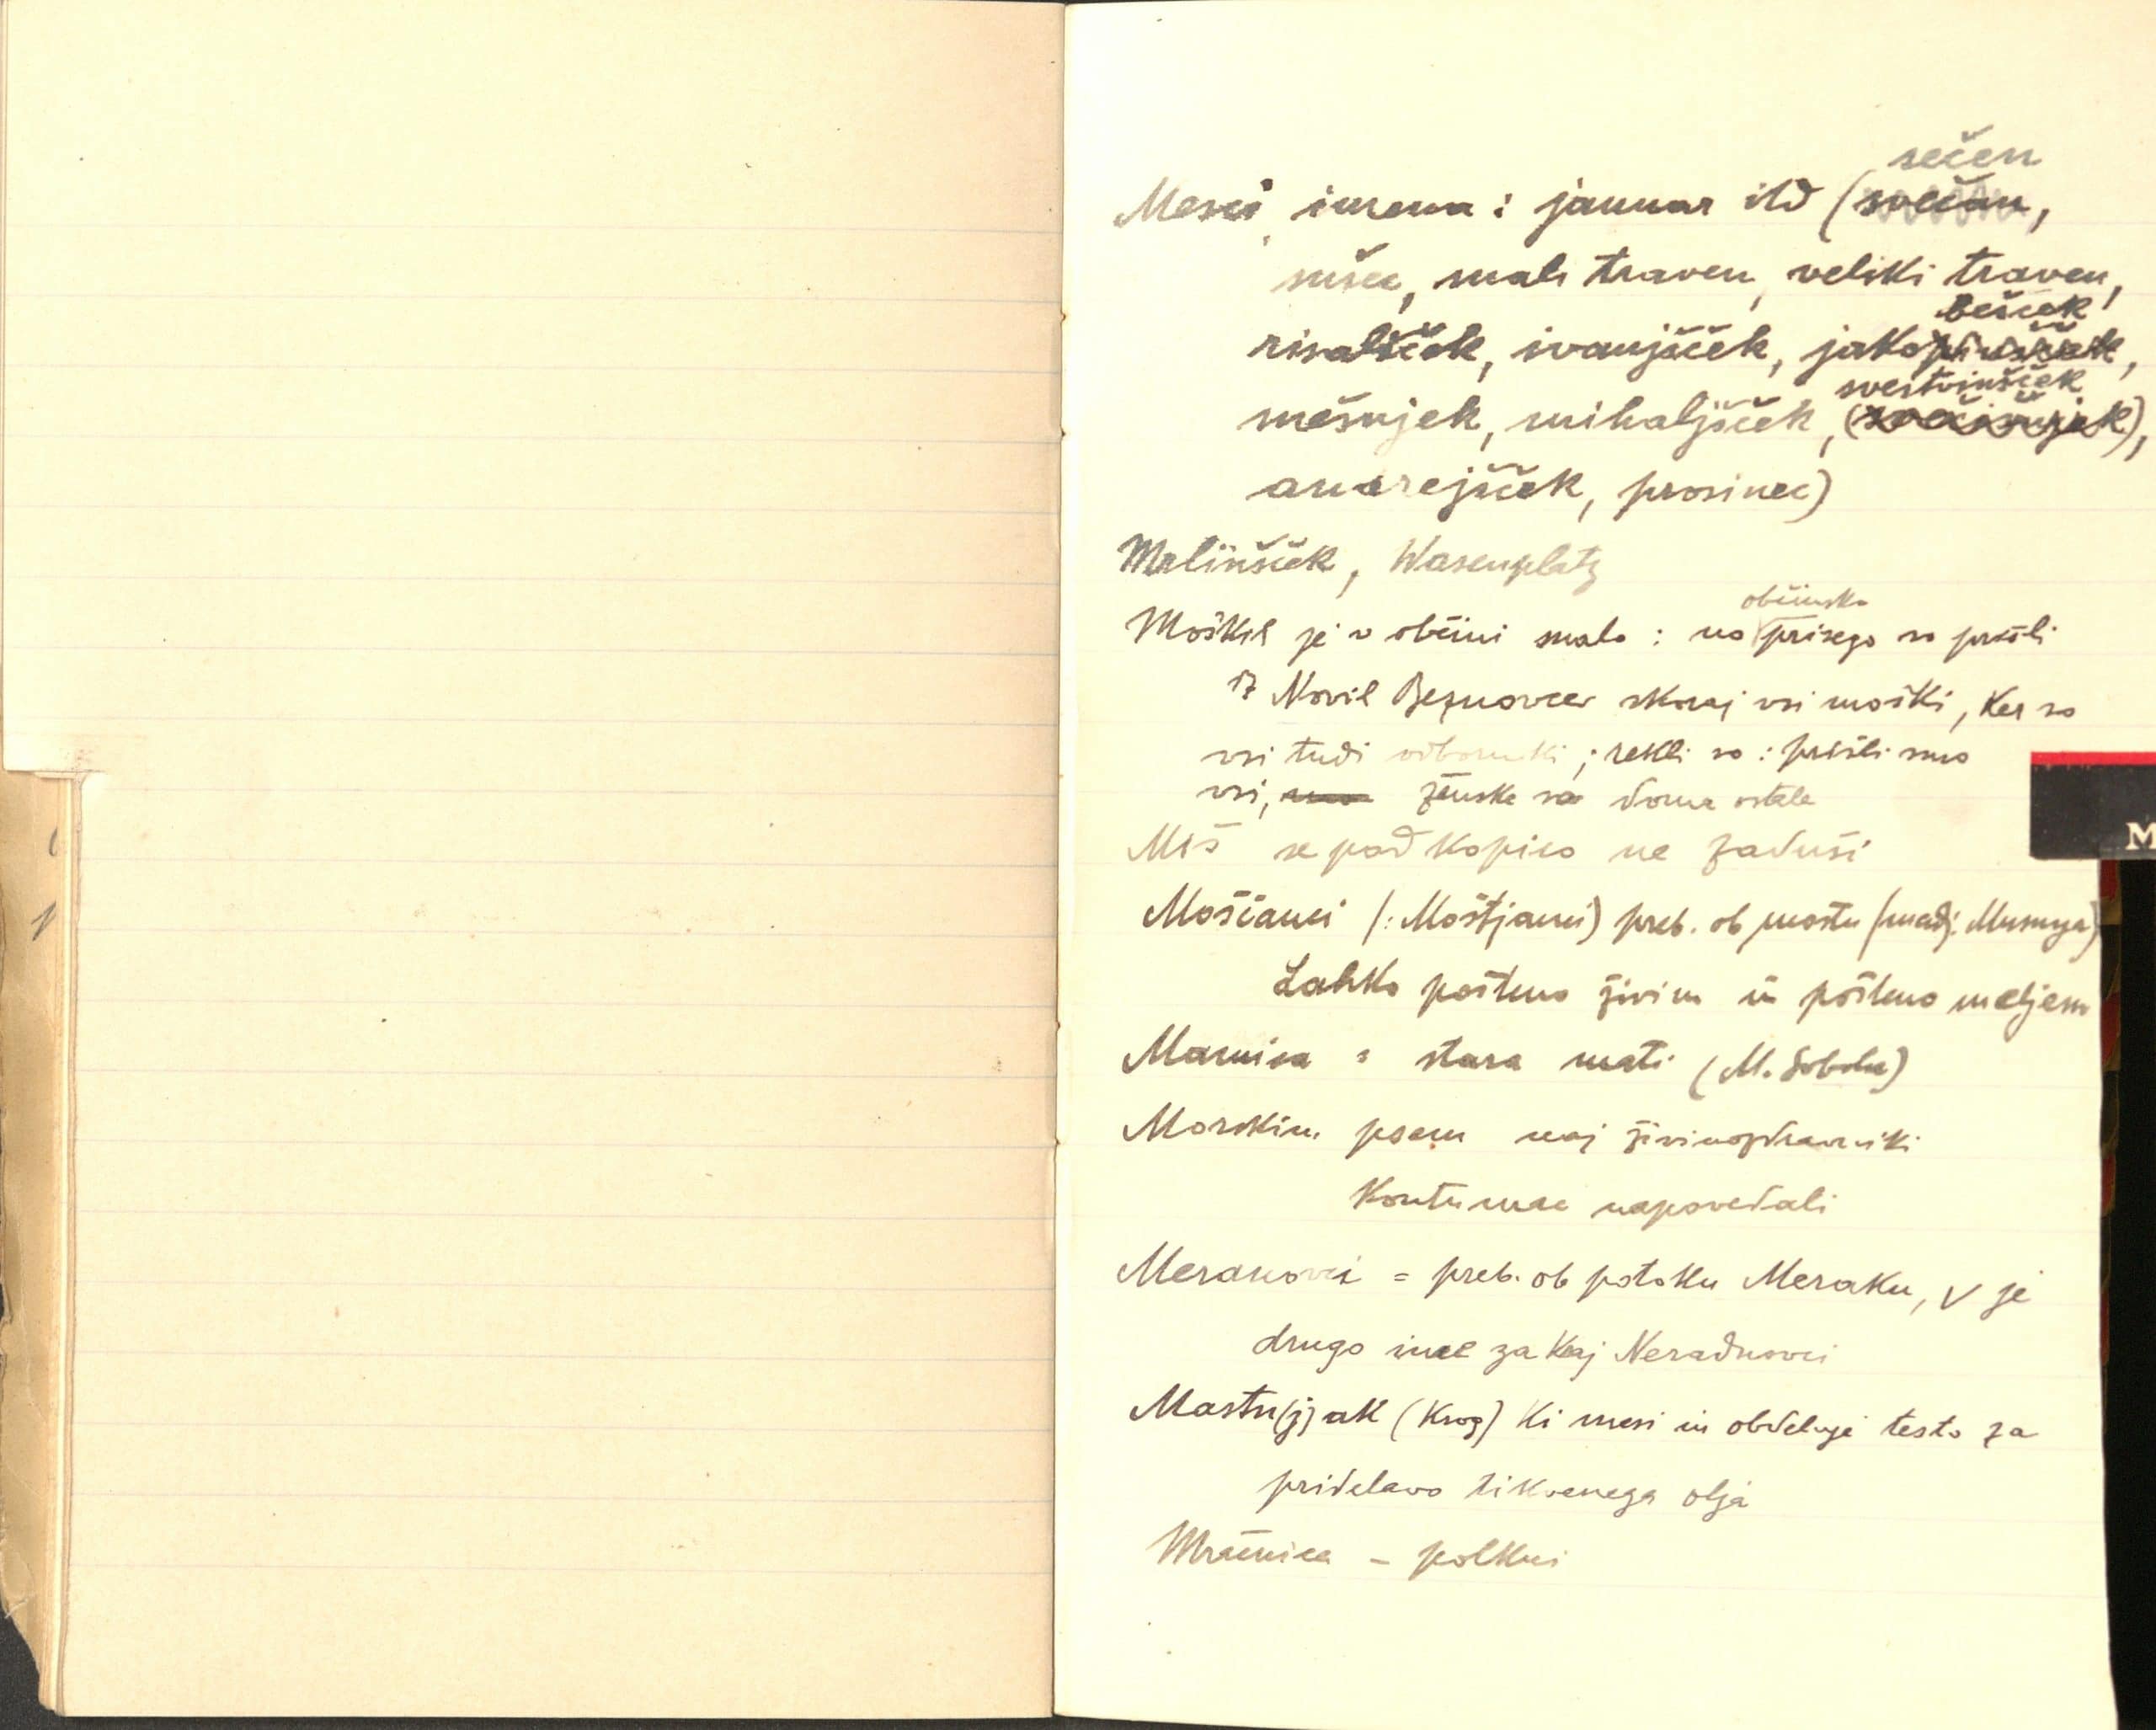 sečen
Mesci imena: januar itd (svečan,
sušec, mali traven, veliki traven,
bešček
risalšček, ivanjšček, jakopinšček,
svestvinšček
mešnjek, mihaljšček,
andrejšček, prosinec)
Mrlinšček, Wasenplatz
občinsko
Moških je v občini malo: na prisego so prišli
iz Novih Beznovec skoraj vsi moški, ker so
vsi tudi odborniki; rekli so: prišli smo
vsi, ženske so doma ostale
Miš se pod kopico ne zaduši
Moščanci (: Moštjanci) preb. ob mostu (madj. Musnya)
Lahko pošteno živim in pošteno meljem
Mamica = stara mati (M. Sobota)
Morskim psom naj živinozdravniki
Kontumac napovedali
Merakovci = preb. ob potoku Meraku, V je
drugo ime za kaj Neradnovci
Mastn(j)ak (Krog) ki mesi in obdeluje testo za
pridelavo tikvenega olja
Mračnica - polkni
M